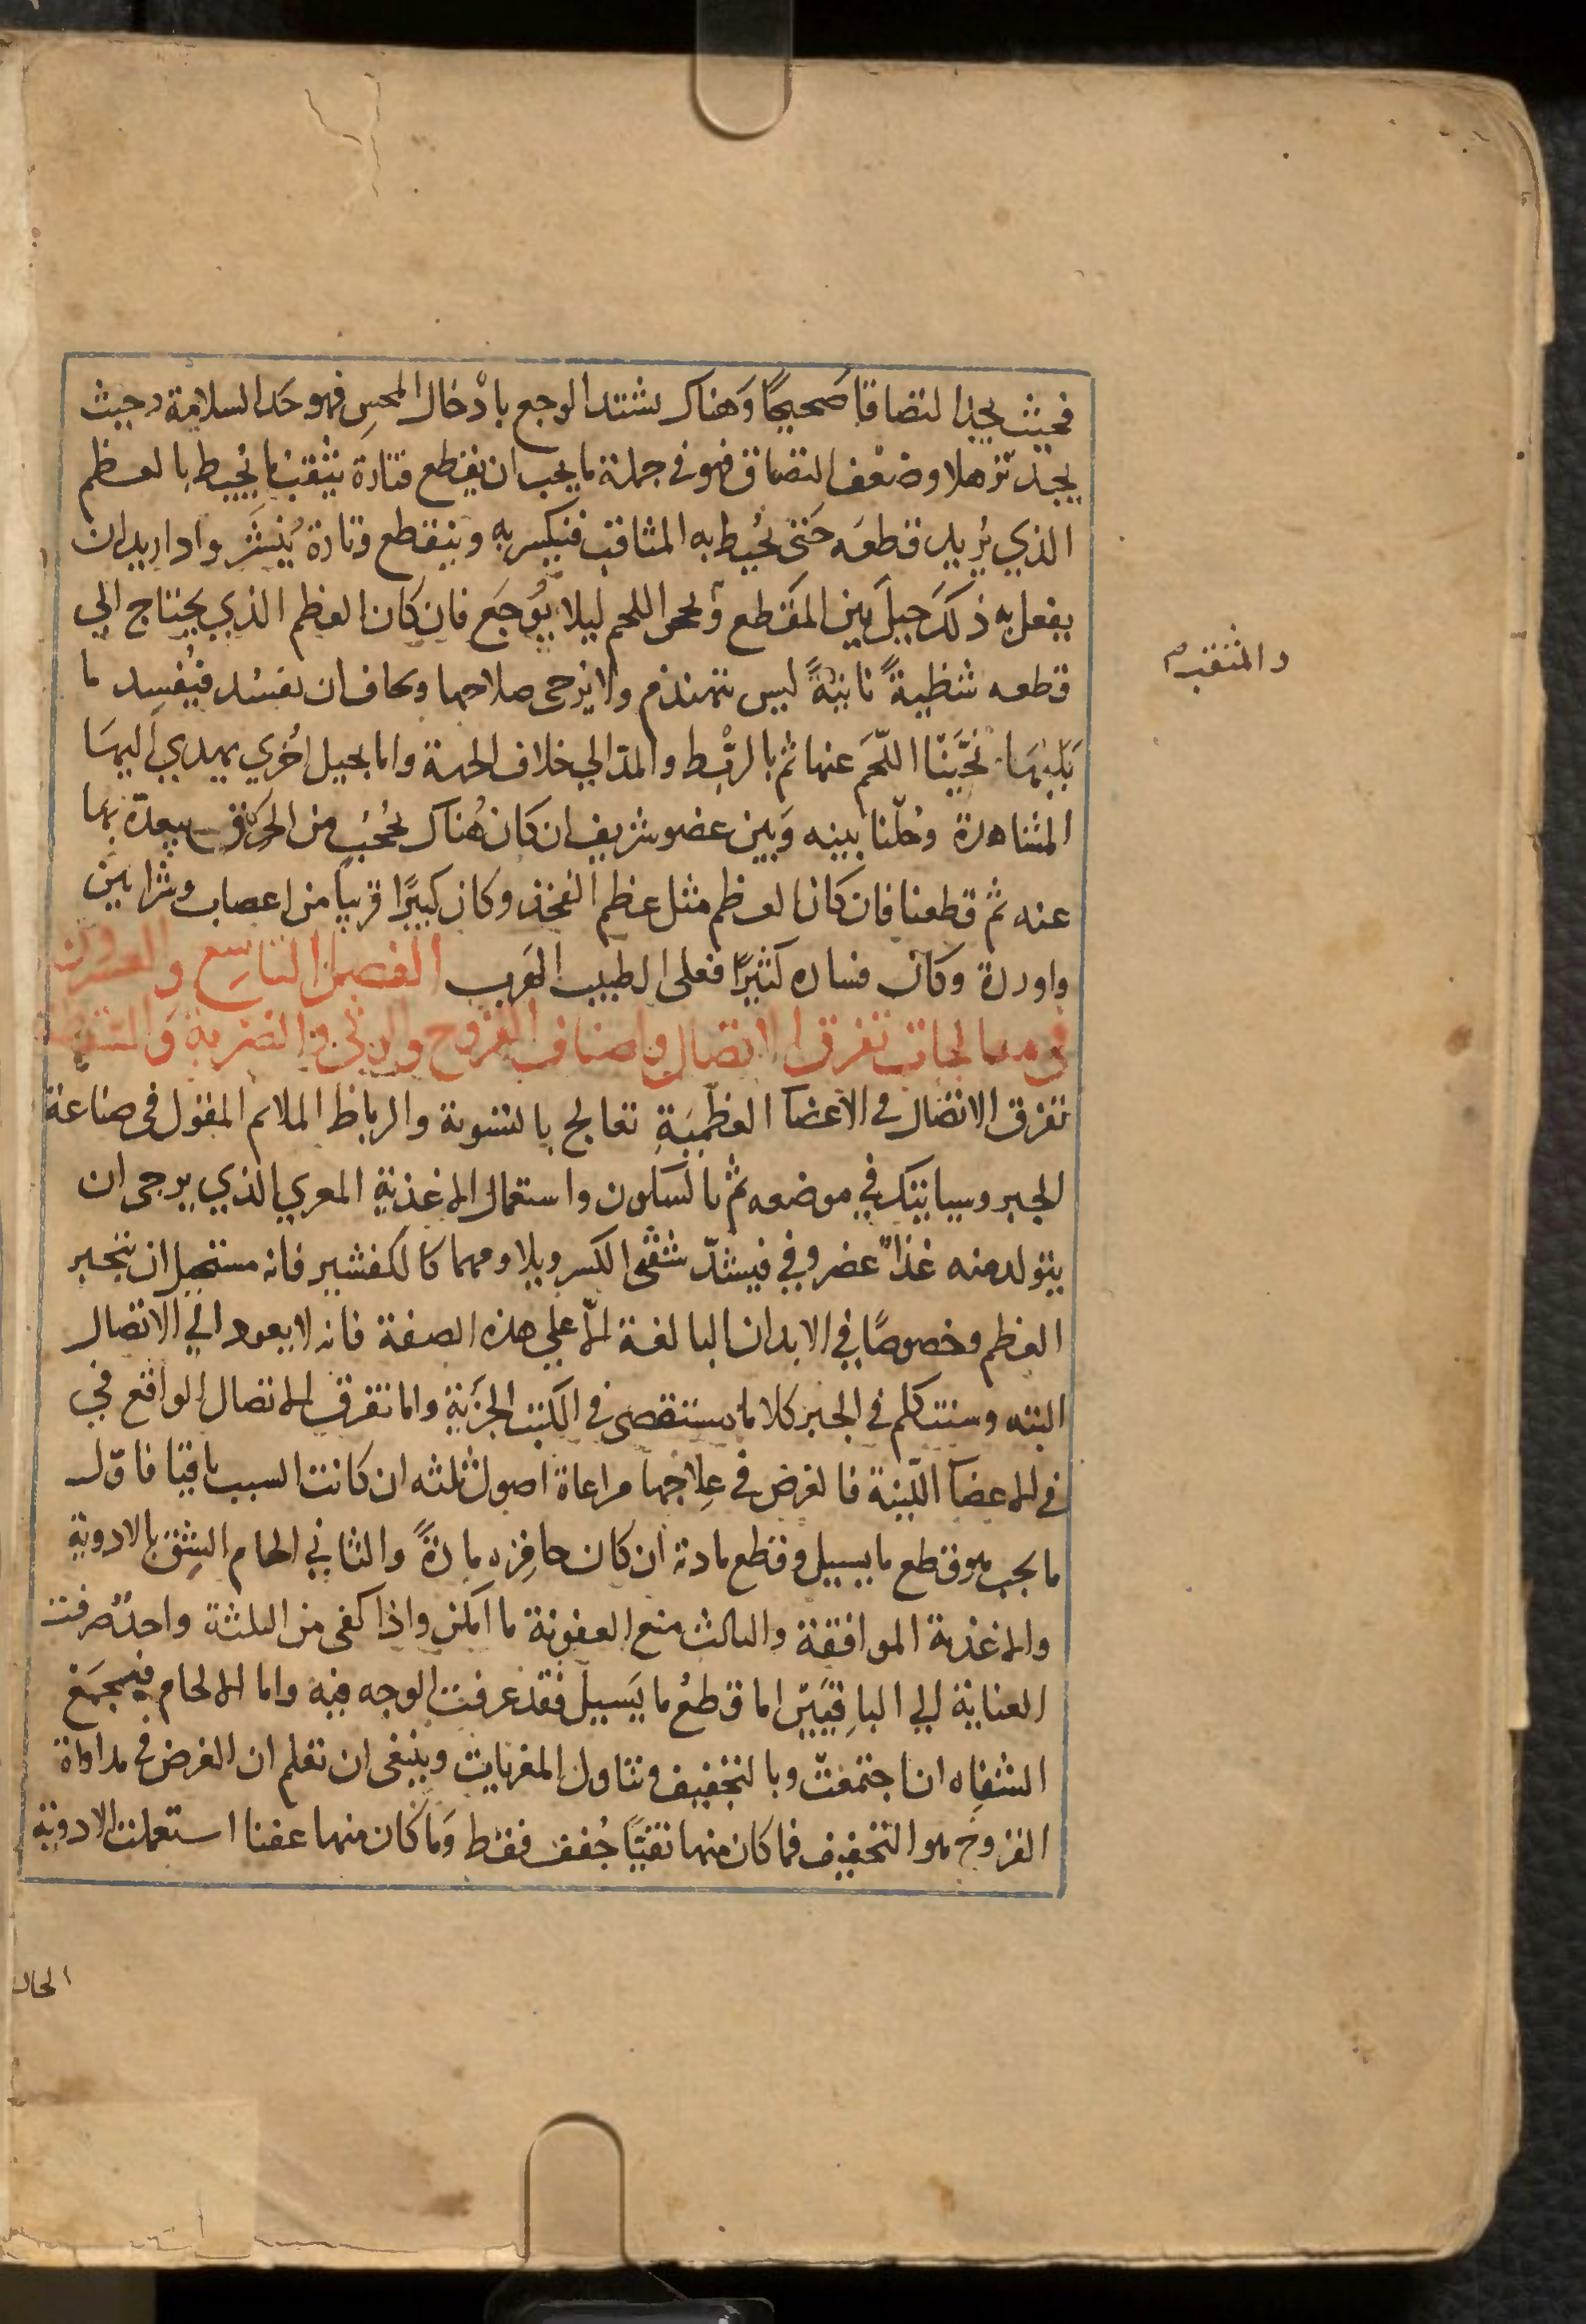 فحيث يجد التصاقا صَحيحًا وَهناك يشتد الوجع بادْخال المحسِ فهو حَد السلامة وحيث
يجد ترهلا وضعف التصاق فهو في جملة ما يجب ان يقطع فتارة يثقب ما يُحيط بالعظم
الذي يُريد قطعَه حَتي يُحيط به المثاقب فينكسر به وينقطع وتارة يُنشَر واذا اريد ان
يفعل به ذلكَ حيلَ بين المقطع وبحر اللحم ليلا يُوجَع فان كان العظم الذي يحتاج الي
قطعه شظيةً ناتيةً ليس تتهندم ولا يرجى صلاحها ويخاف ان تفسُد فيُفسِد ما
يَليهَا نحَّينا اللّحمَ عنها ثم بالربْط والمدّ الي خلاف الجهة واما بحيل اخري يهدي اليهَا
المشاهدة وحُلْنا بينه وَبين عضو شريف ان كان هُناك بحُجُبٍ من الخرق يبعدّه بها
عنه ثم قطعنا فان كان العظم مثل عظم الفخذ وكان كبيرًا قريبا من اعصاب وشرايين
واوردة وكان فساده كثيرًا فعلي الطبيب الهَرب الفصل التاسع والعشرون
في معالجات تفرق الاتصال واصناف القروح والوثي والضربة وَالسقطة
تفرق الاتصال في الاَعضآ العظْميَةِ تعالج بالتسوية والرباط الملائم المفتول في صناعة
الجبر وسياتيك في موضعه ثم بالسكون واستعمال الاغذية المغرية الذي يرجى ان
يتولد منه غذآ غضروفي فيشدّ شفتى الكسر ويلاومهما كالكفشير فانه مستحيل ان ينجبر
العظم وخصوصًا في الابدان البالغة الاّ علي هذه الصفة فانه لا يعود الي الاتصال
البته وسنتكلم في الجبر كلاما مستقصى في الكتب الجزَئية واما تفرق الاتصال الواقع في
في الاعضآ اللّينة فالغرض في علِاجها مراعاة اصول ثلثه ان كانت السبب باقيًا فاوّل
ما يجب هو قطع ما يسيل وقطع مادته ان كان حافِزه مادةً والثاني الحام الشِق بالادوية
والاغذية الموافقة والثالث منع العفونة ما امكن واذا كفى من الثلثة واحدٌ صرفت
العناية الي الباقيَين اما قطعُ ما يَسيل فقد عرفت الوجه فيه واما الالحام فيجمَع
الشفاه ان اجتمعتْ وبالتجفيف وتناول المغريات وينبغي ان تعلم ان الغرض في مداواة
القروح هو التجفيف فما كان منها نقيًا جُفف فقط وَما كان منها عفنا استعملت الادوية
والمثقب م
الحاد